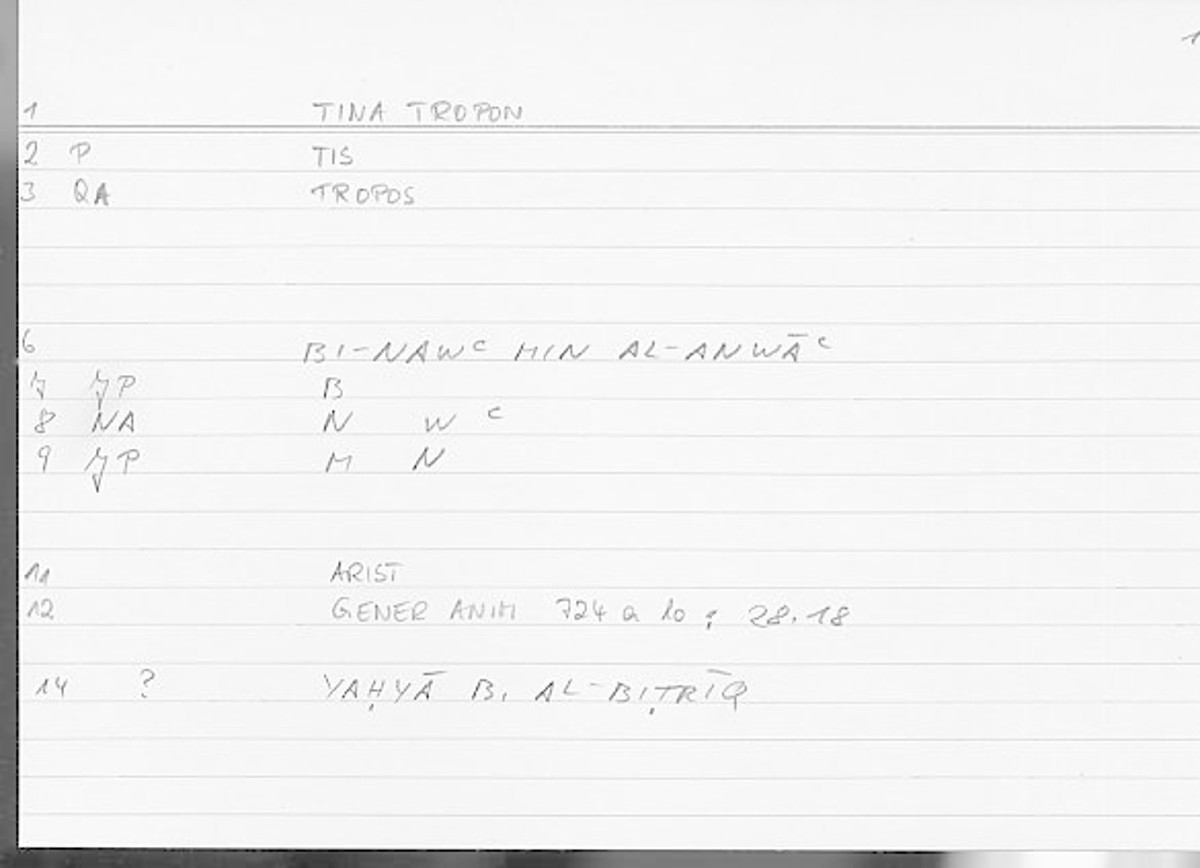 1
1 TINA TROPON
2 P TIS
3 QA TROPOS
6 BI-NAWᶜ MIN AL-ANWĀᶜ
7 JP B
8 NA N W ᶜ
9 JP M N
11 ARIST
12 GENER ANIM 724 a 10 ; 28.18
14 ? YAḤYĀ B. AL-BIṬRĪQ